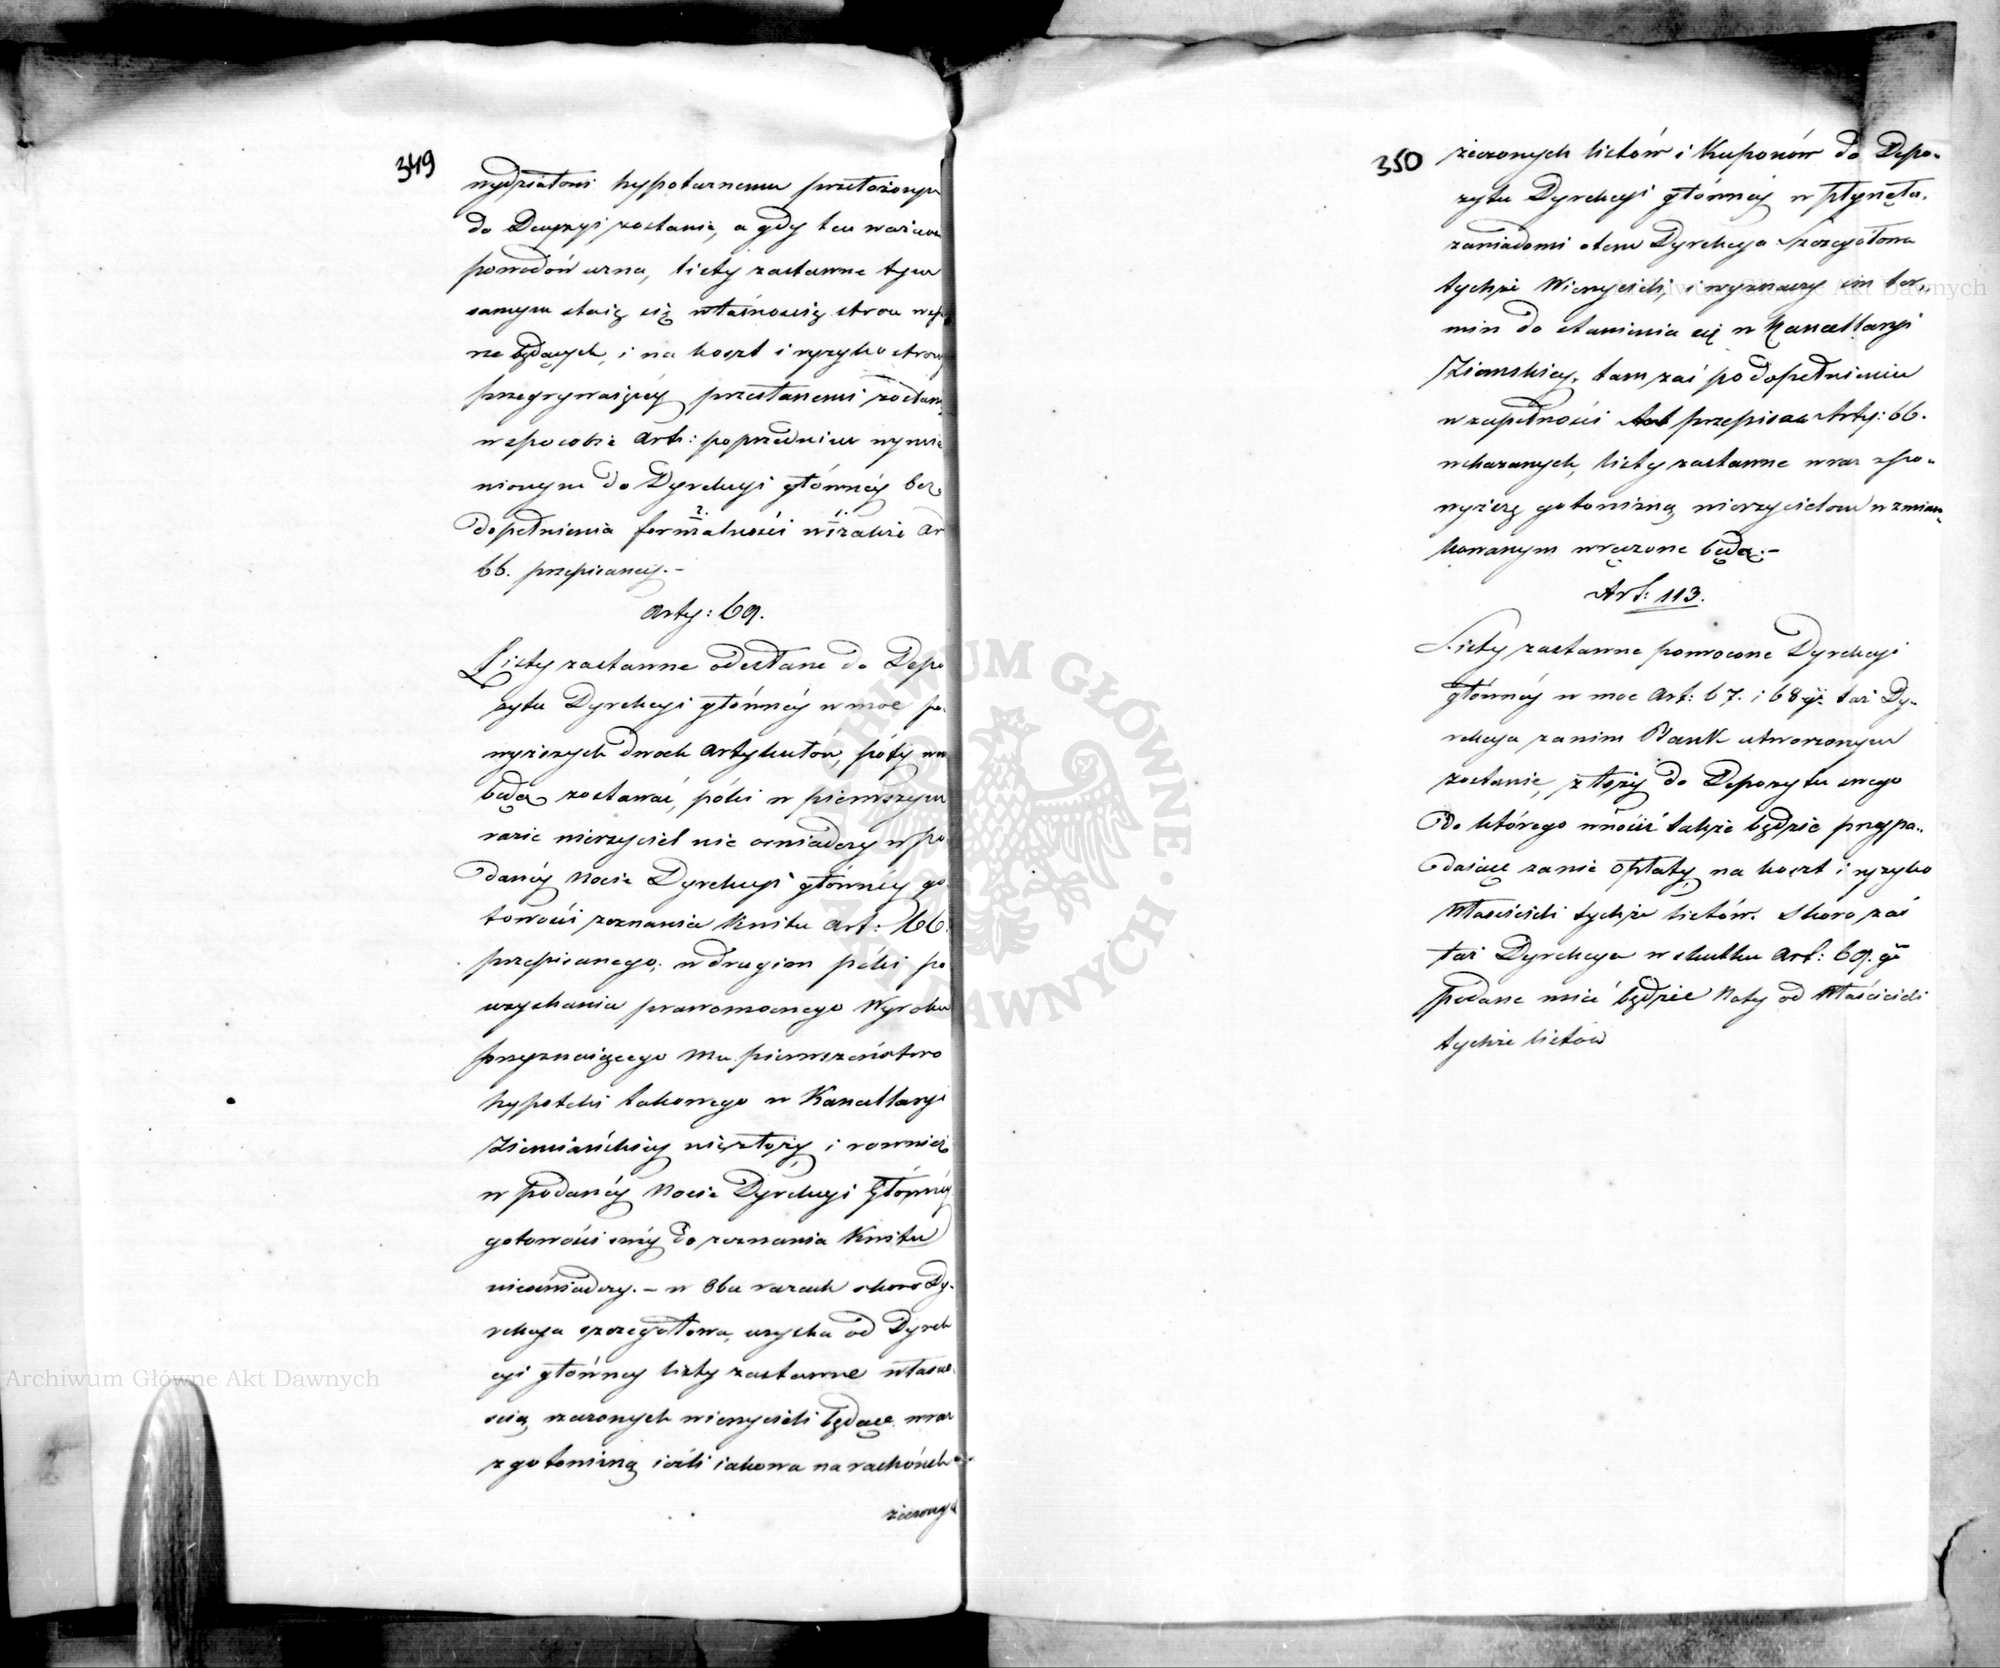 349
wydziałowi hypotecznemu przełożonym
do Decyzyi zostanie, a gdy ten ważność
powodów uzna, listy zastawne tym
samym staią się własnością stron
rze będących, i na koszt i ryzyko stron
przegrywaiącéy przesłanemi zostaną
w sposobie Art: poprzednim wymie
nionym do Dyrekcyi głównéy bez
dopełnienia formalności wszakże Ar
66. przepisanéy.-
Arty: 69.
Listy zastawne odesłane do Depo
zytu Dyrekcyi głównéy w moc po.
wyższych dwóch Artykułów, póty
będą zostawać, póki w pierwszym
razie wierzyciel nie oświadczy w po
danéy Nocie Dyrekcyi głównéy go
towości zeznania Kwitu Art: 66.
przepisanego; w drugim póki po
uzyskaniu prawomocnego Wyroku
przyznaiącego mu pierwszeństwo
hypoteki takowego w Kancellaryi
Ziemiańskiey niezłoży i rownież
w podanéy Nocie Dyrekcyi Głównéy
gotowości swéy do zeznania Kwitu
nieoświadczy.- w obu razach skoro Dy-
rekcya szczegółowa, uzyska od Dyrek
cyi główney listy zastawne własno
scią rzeczonych wierzycieli będące wraz
z gotowizną ieśli iakowa na rachónek
rzeczonych
350
rzeczonych listów i Kuponów do Depo-
zytu Dyrekcyi głównéy wpłynęła.
zawiadomi o tem Dyrekcya Szczegółowa
tychże Wierzycieli, i wyznaczy im ter-
min do stawienia się w Kancellaryi
Ziemskiey, tam zaś po dopełnieniu
w zupełności przepisan Arty: 66.
wskazanych, listy zastawne wraz z po-
wyższą gotowizną wierzycielom wzmian-
kowanym wręczone będą.-
Art: 113.
Listy zastawne powrocone Dyrekcyi
głównéy w moc Art: 67. i 68 go taż Dy-
rekcya zanim Bank utworzonym
zostanie, złoży do Depozytu swego
do którego wnosić także będzie przypa-
daiące zanie opłaty, na koszt i ryzyko
Właścicieli tychże listów. Skoro zaś
taż Dyrekcya w skutku Art: 69. go
podane mieć będzie Noty od Właścicieli
tychże listów